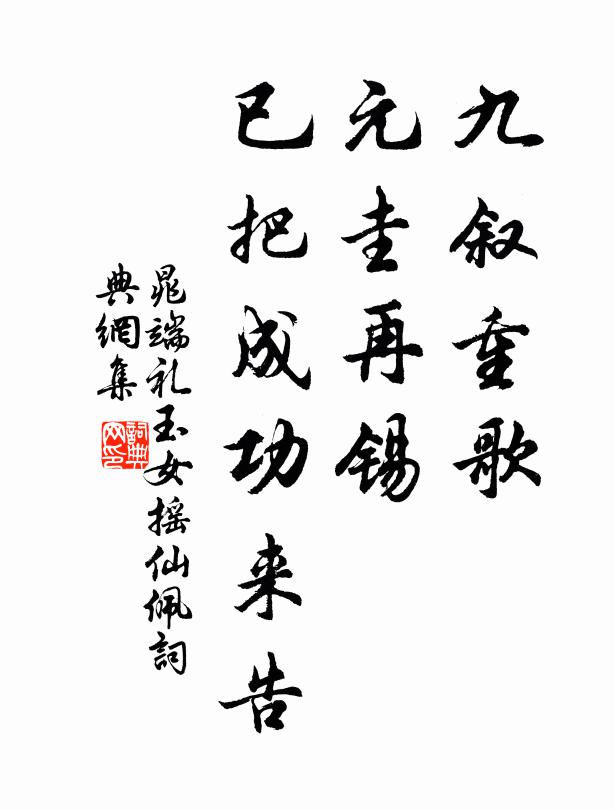 九叙重歌
元圭再锡
已把成功来告
晁端礼玉女摇仙佩詞
典網集
詞典网印